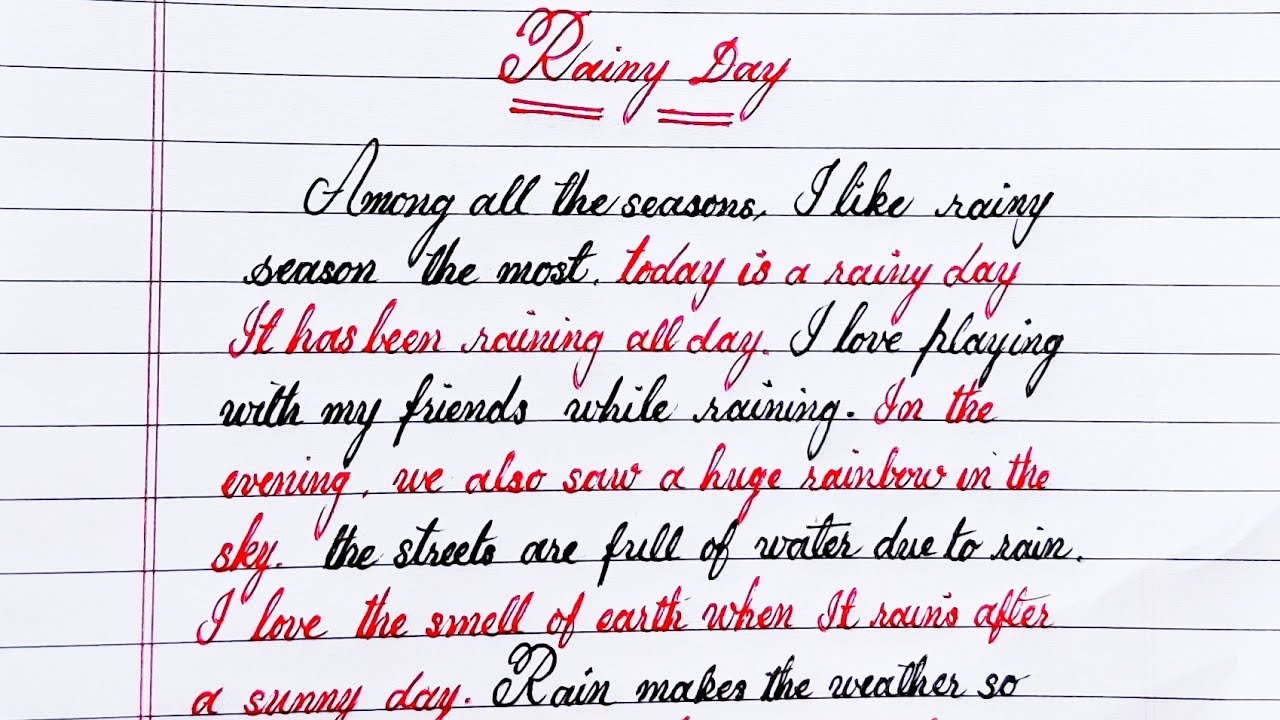 Rainy Day
Among all the seasons, I like rainy
season the most. today is a rainy day
It has been raining all day. I love playing
with my friends while raining. In the
evening, we also saw a huge rainbow in the
sky. the streets are full of water due to rain.
I love the smell of earth when It rains after
a sunny day. Rain makes the weather so